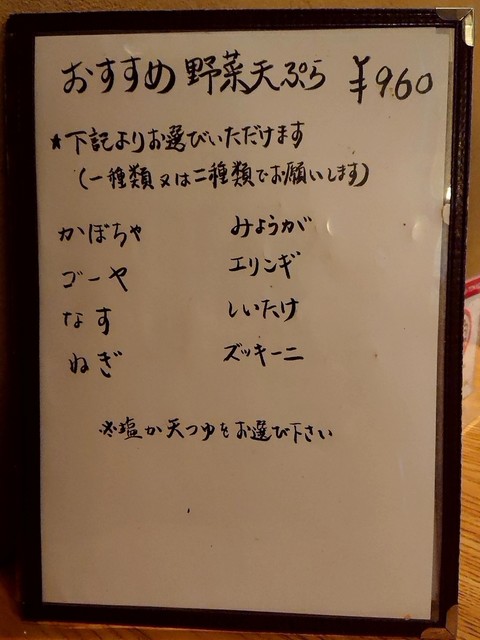 おすすめ 野菜天ぷら ¥960
★下記よりお選びいただけます
(一種類又は二種類でお願いします)
かぼちゃ みょうが
ゴーヤ エリンギ
なす しいたけ
ねぎ ズッキーニ
※塩か天つゆをお選び下さい